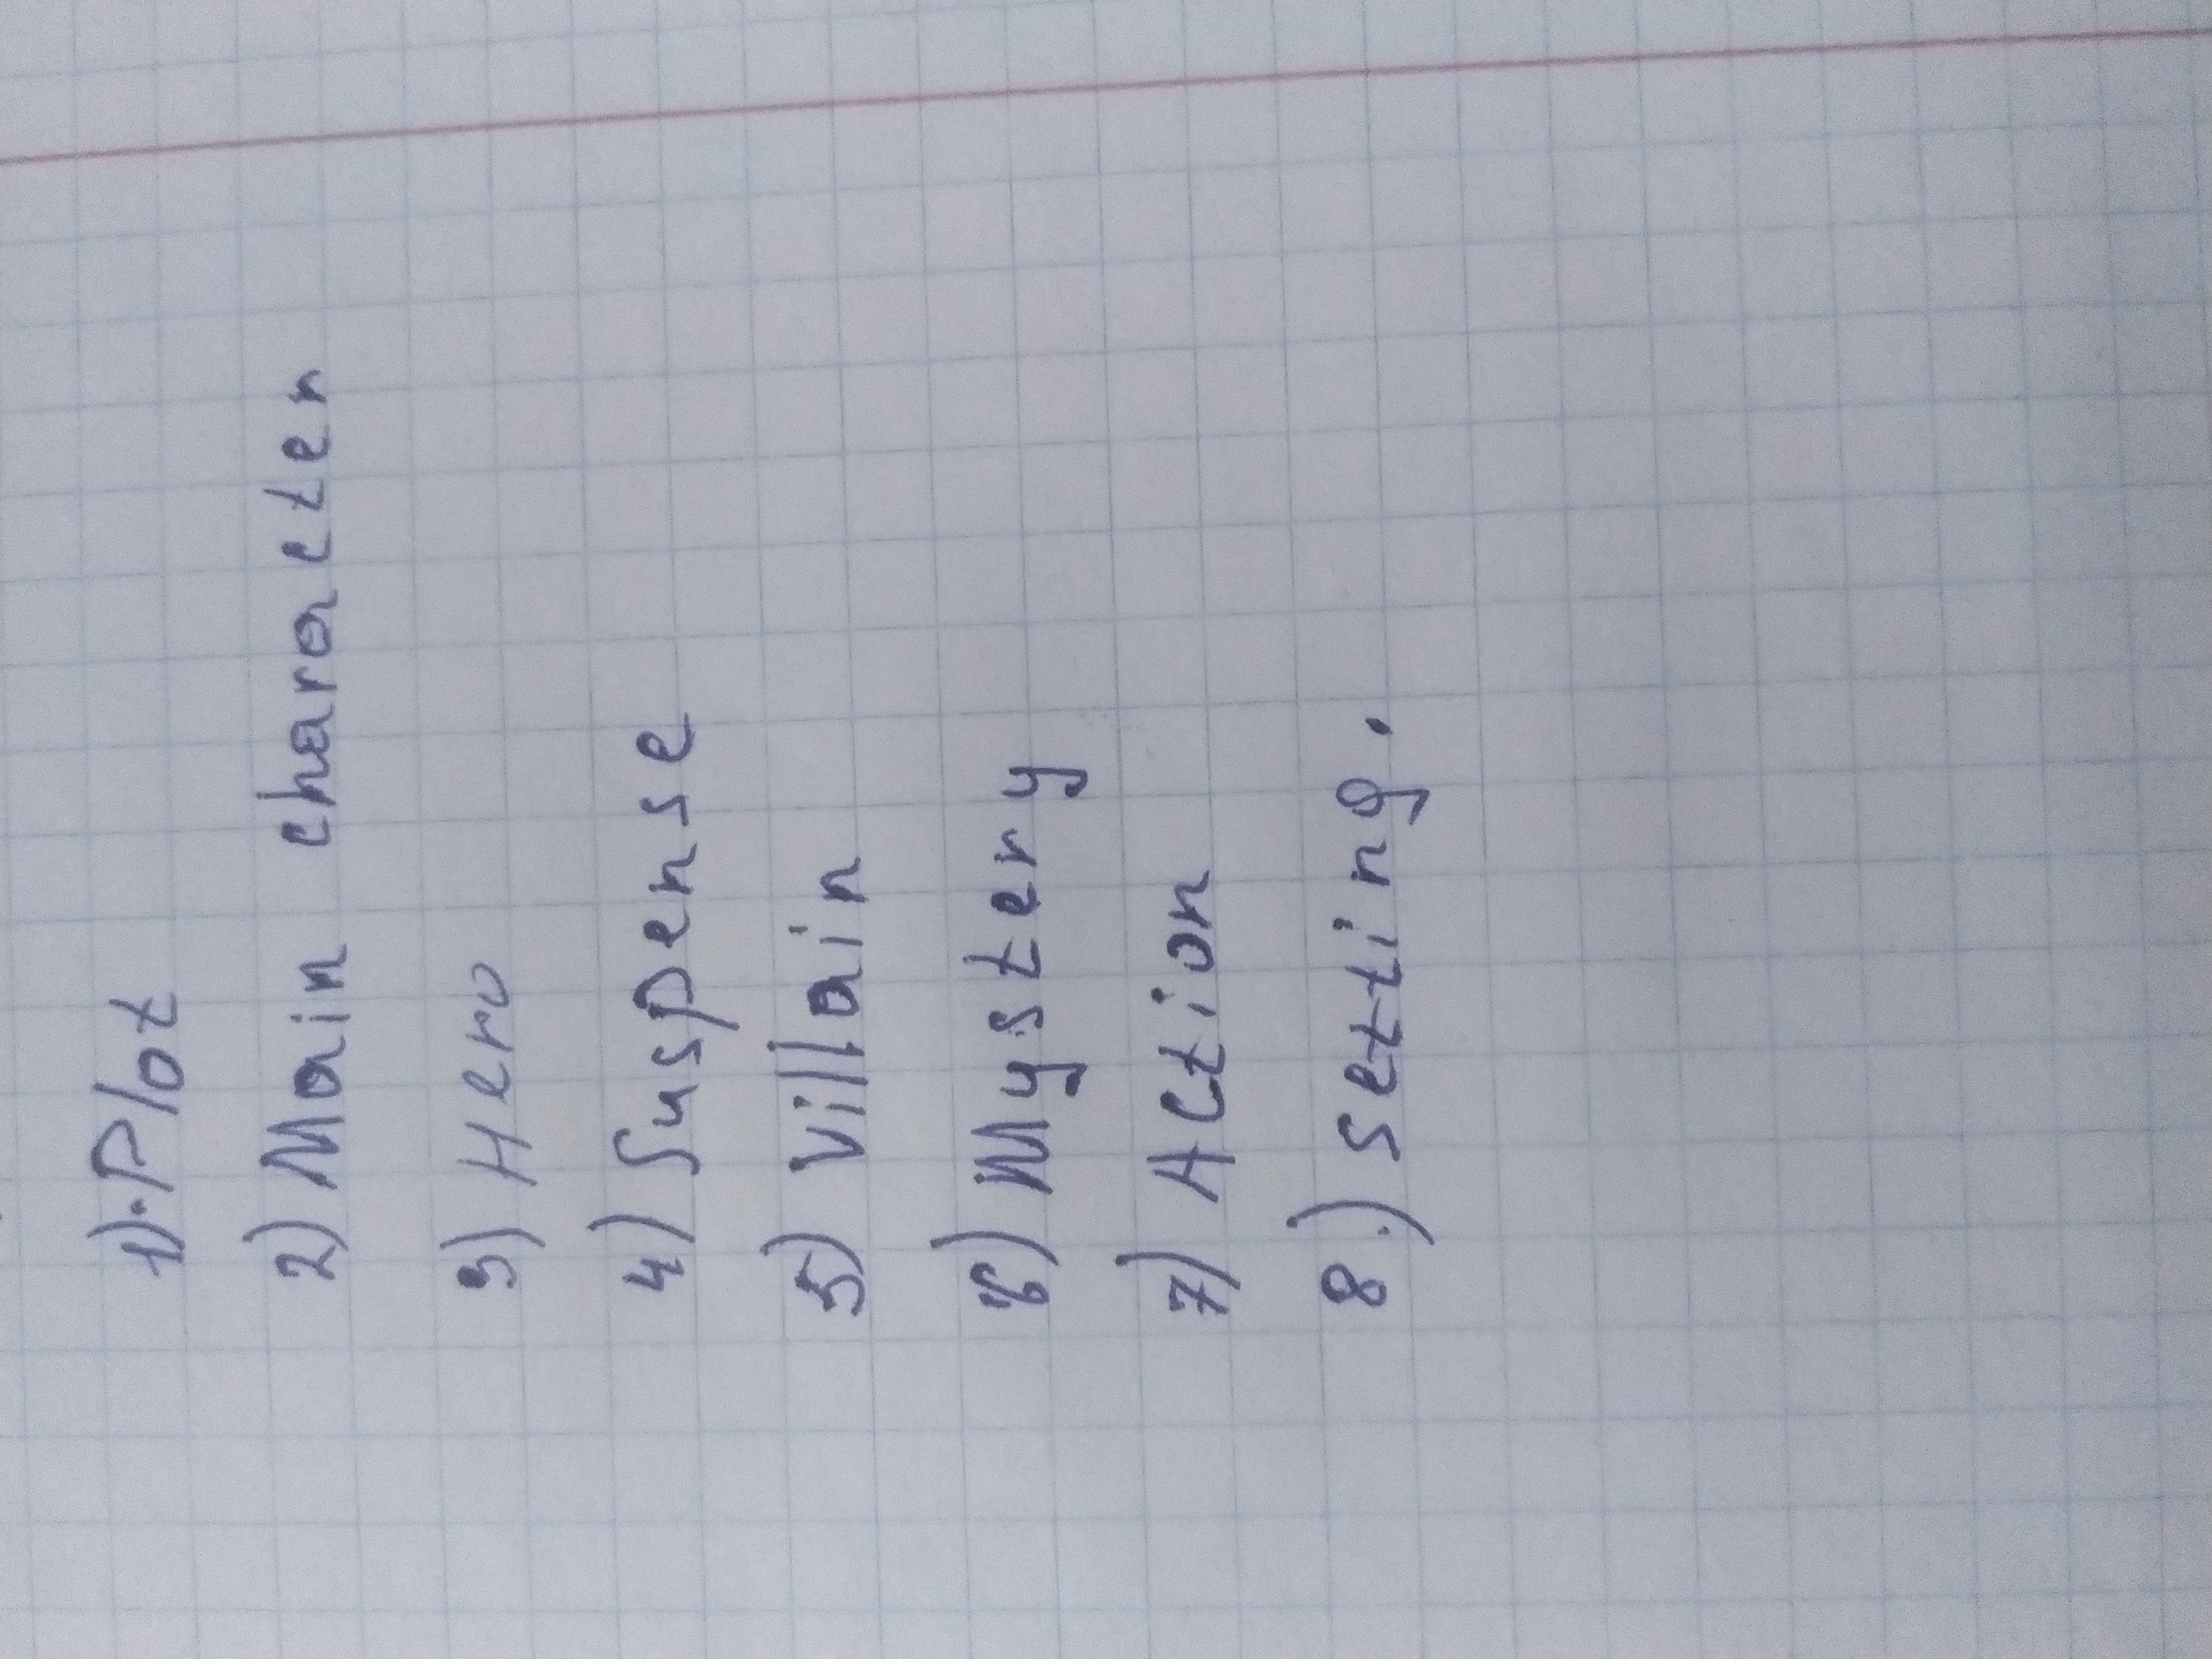 1). Plot
2) Main character
3) Hero
4) Suspense
5) Villain
6) Mystery
7) Action
8.) setting.